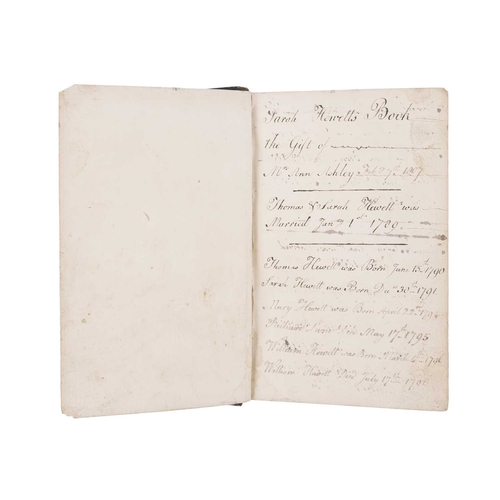 Sarah Hewett's Book
the Gift of
Mrs Ann Ashley
Thomas & Sarah Hewett was
Married Jany 1st 1789
Thomas Hewett was Born June 15th 1790
Sarah Hewett was Born 30th 1791
Mary Hewett was Born April
Died May 17th 1795
William Hewett was Born March
William Hewett Died July 17th